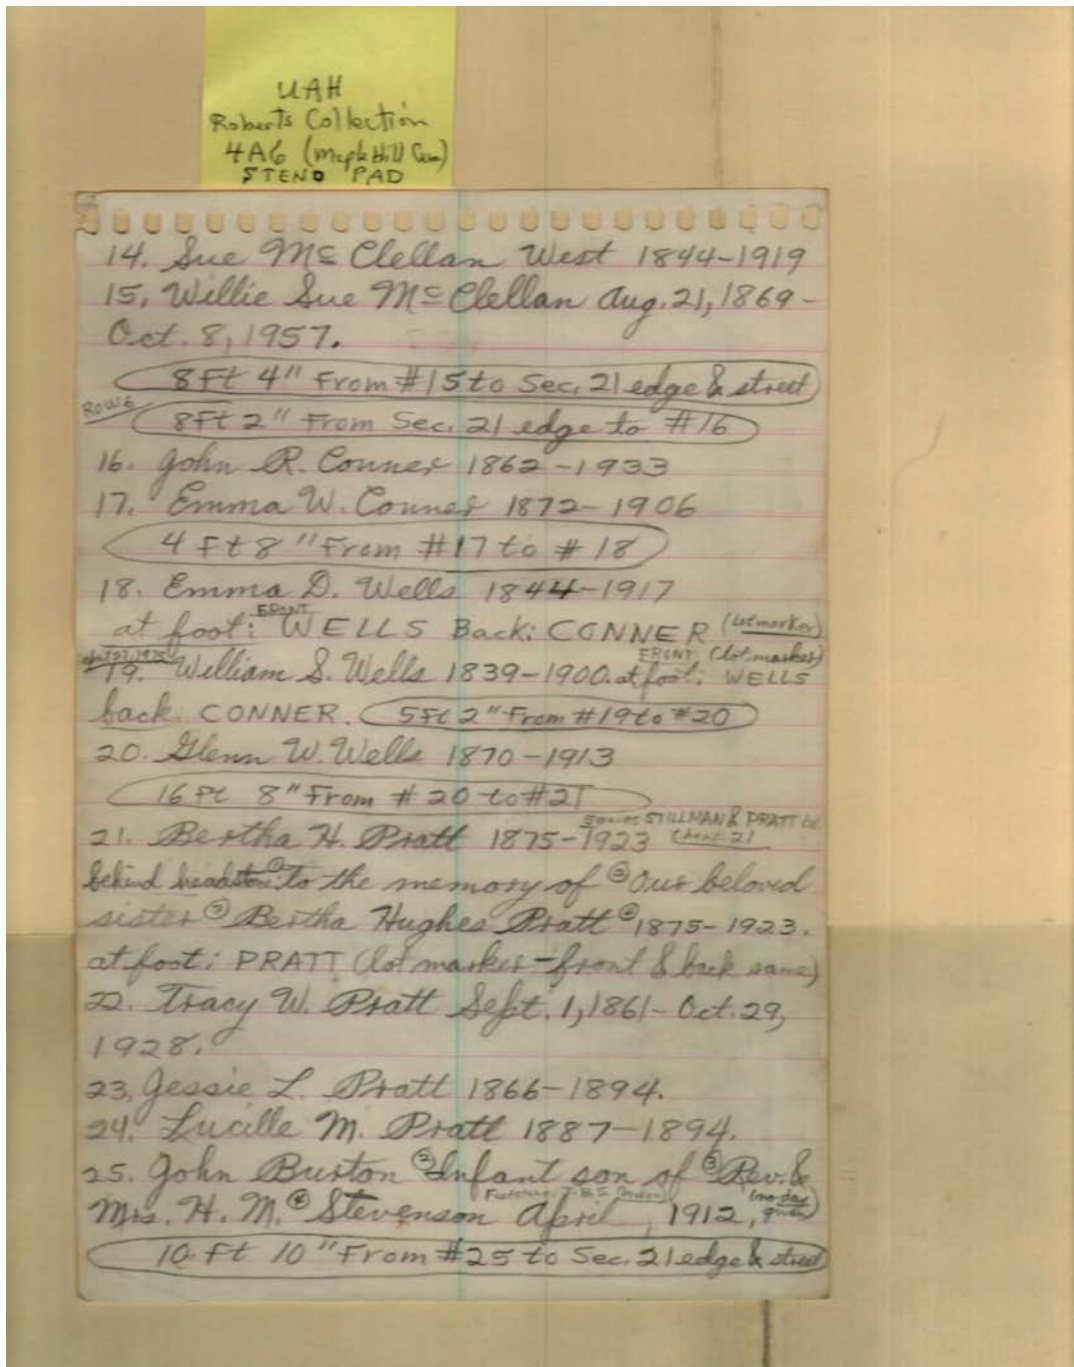 UAH
Roberts Collection
4A6 (Maple Hill Cem)
STENO PAD
14. Sue McClellan West 1844-1919
15. Willie Sue McClellan Aug. 21, 1869-
Oct. 8, 1957.
8Ft 4" From #15 to Sec. 21 edge & street
ROW 6
8Ft 2" From Sec. 21 edge to #16
16. John R. Conner 1862-1933
17. Emma W. Conner 1872-1906
4 Ft 8" From #17 to #18
18. Emma D. Wells 1844-1917
at foot: FRONT WELLS Back: CONNER (lot marker)
FRONT (lot marker)
19. William S. Wells 1839-1900. at foot: WELLS
back CONNER. 5Ft 2" From #19 to #20
20. Glenn W. Wells 1870-1913
16 Ft 8" From #20 to #21
STILLMAN & PRATT
21. Bertha H. Pratt 1875-1923
behind headstone: ① to the memory of ② Our beloved
sister ③ Bertha Hughes Pratt ④ 1875-1923.
at foot: PRATT (lot marker - front & back same)
22. Tracy W. Pratt Sept. 1, 1861- Oct. 29,
1928.
23. Jessie L. Pratt 1866-1894.
24. Lucille M. Pratt 1887-1894.
25. John Burton ② Infant son of ③ Rev. &
Mrs. H. M. ④ Stevenson April , 1912, (no day given)
10 Ft 10" From #25 to Sec. 21 edge & street